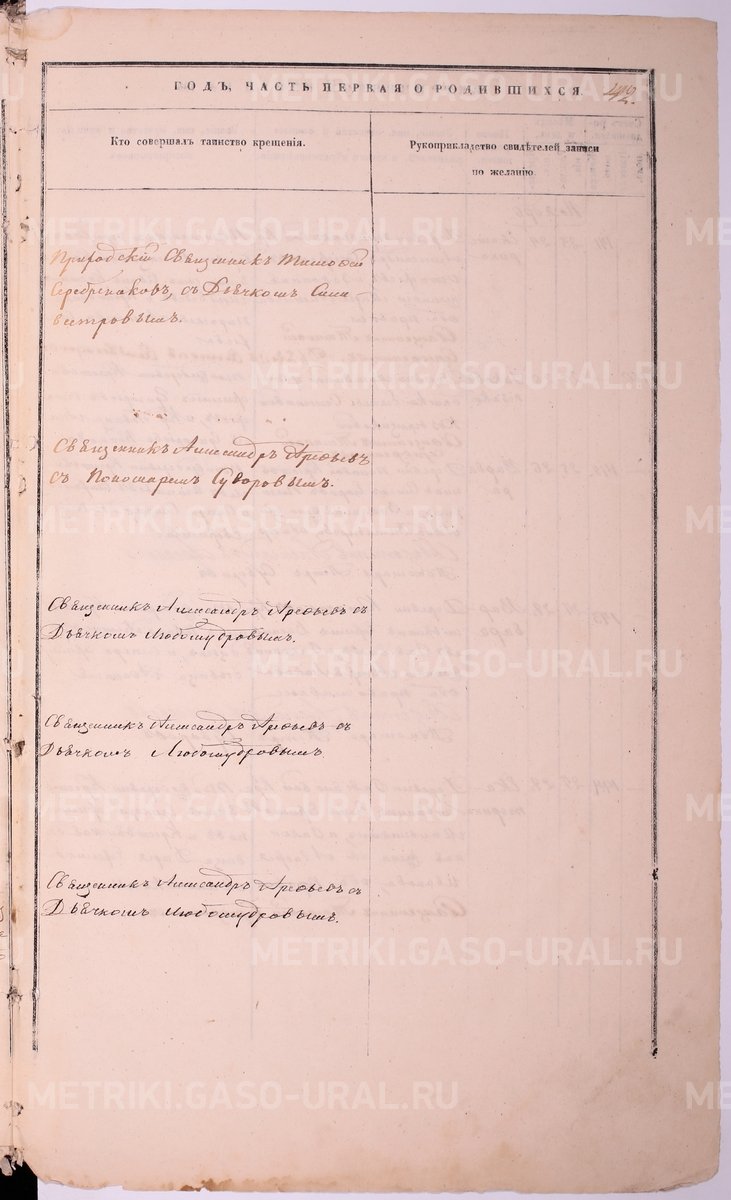 ГОДЪ, ЧАСТЬ ПЕРВАЯ О РОДИВШИХСЯ.
Кто совершалъ таинство крещенія.
Рукоприкладство свидѣтелей записи
по желанію
Приходскій Священникъ Тимофей
Серебренаковъ, съ Дьячкомъ Сили-
вестровымъ.
Священникъ Александръ Арефьевъ
съ Пономаремъ Суворовымъ.
Священникъ Александръ Арефьевъ съ
Дьячкомъ Любомудровымъ.
Священникъ Александръ Арефьевъ съ
Дьячкомъ Любомудровымъ.
Священникъ Александръ Арефьевъ съ
Дьячкомъ Любомудровымъ.
METRIKI.GASO-URAL.RU